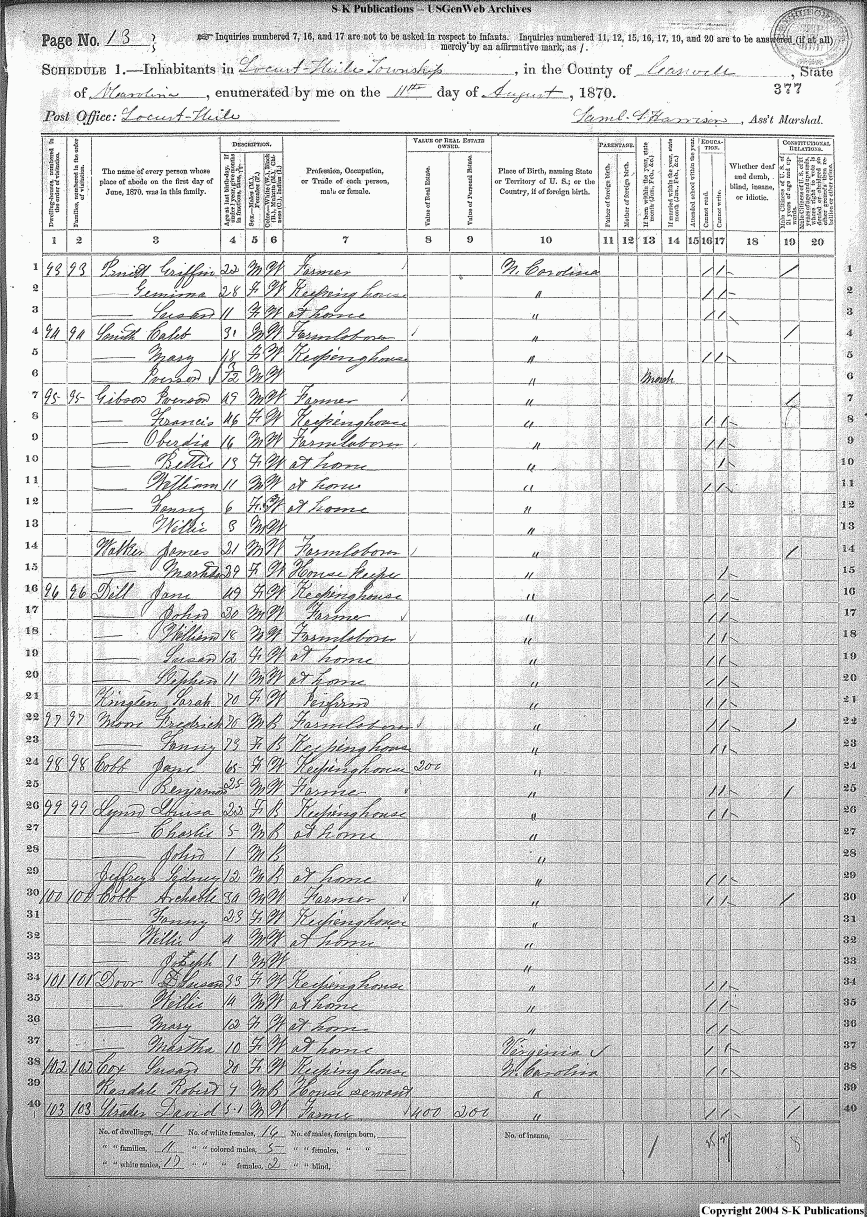 S-K Publications -- USGenWeb Archives
Page No. 13
Inquiries numbered 7, 16, and 17 are not to be asked in respect to infants. Inquiries numbered 11, 12, 15, 16, 17, 19, and 20 are to be answered (if at all) merely by an affirmative mark, as /.
SCHEDULE 1.—Inhabitants in Locust-Hill Township, in the County of Caswell, State
of N Carolina, enumerated by me on the 11th day of August, 1870.
377
Post Office: Locust-Hill
Saml. Harrison, Ass't Marshal.
DESCRIPTION. VALUE OF REAL ESTATE OWNED. PARENTAGE. EDUCATION. CONSTITUTIONAL RELATIONS.
Dwelling-houses, numbered in the order of visitation.
Families, numbered in the order of visitation.
The name of every person whose place of abode on the first day of June, 1870, was in this family.
Profession, Occupation, or Trade of each person, male or female.
Value of Real Estate.
Value of Personal Estate.
Place of Birth, naming State or Territory of U. S.; or the Country, if of foreign birth.
Father of foreign birth.
Mother of foreign birth.
Attended school within the year.
Cannot read.
Cannot write.
Whether deaf and dumb, blind, insane, or idiotic.
1 2 3 4 5 6 7 8 9 10 11 12 13 14 15 16 17 18 19 20
1 93 93 Griffin 22 M W Farmer N. Carolina / / / 1
2 — Gemima 28 F W Keeping house " / / 2
3 — Susan 11 F W at home " / / 3
4 94 94 Smith Caleb 31 M W Farmlaborer " / 4
5 — Mary 18 F W Keeping house " / / 5
6 — Iverson 3/12 M W " March 6
7 95 95 Gibson Iverson 49 M W Farmer " / 7
8 — Francis 46 F W Keeping house " / / 8
9 — Oberdia 16 M W Farmlaborer " / / 9
10 — Bettie 13 F W at home " / 10
11 — William 11 M W at home " / / 11
12 — Fanny 6 F W at home " 12
13 — Willie 3 M W " 13
14 Walker James 21 M W Farmlaborer " / 14
15 — Martha 29 F W House Keeper " / 15
16 96 96 Dill Jane 49 F W Keeping house " / / 16
17 — John 20 M W Farmer " / / 17
18 — William 18 M W Farmlaborer " / / 18
19 — Susan 12 F W at home " / / 19
20 — Stephen 11 M W at home " / / 20
21 Sarah 70 F W " / / 21
22 97 97 Moore Fredrick 76 M B Farmlaborer " / / / 22
23 — Fanny 73 F B Keeping house " / / 23
24 98 98 Cobb Jane 65 F W Keeping house 200 " 24
25 — Benjamin 25 M W Farmer " / / / 25
26 99 99 Lynn Louisa 22 F B Keeping house " / / 26
27 — Charlie 5 M B at home " 27
28 — John 1 M B " 28
29 Jeffreys Sidney 12 M B at home " / / 29
30 100 100 Cobb Archable 30 M W Farmer " / / / 30
31 — Fanny 23 F W Keeping house " 31
32 — Willie 4 M W at home " 32
33 — Joseph 1 M W " 33
34 101 101 Door Susan 33 F W Keeping house " / / 34
35 — Willie 14 M W at home " / / 35
36 — Mary 12 F W at home " / / 36
37 — Martha 10 F W at home Virginia / / 37
38 102 102 Cox Susan 70 F W Keeping house N. Carolina / / 38
39 Robert 7 M B House servant " 39
40 103 103 Strader David 51 M W Farmer 400 200 " / / / 40
No. of dwellings, 11 No. of white females, 16 No. of males, foreign born, No. of insane,
" " families, 11 " " colored males, 5 " " females, " "
" " white males, 17 " " " females, 2 " " blind,
Copyright 2004 S-K Publications